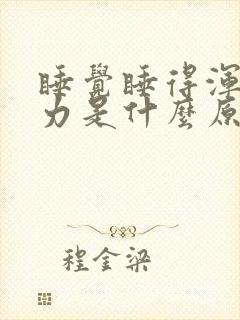 睡覺睡得渾
力是什麼原
程金梁